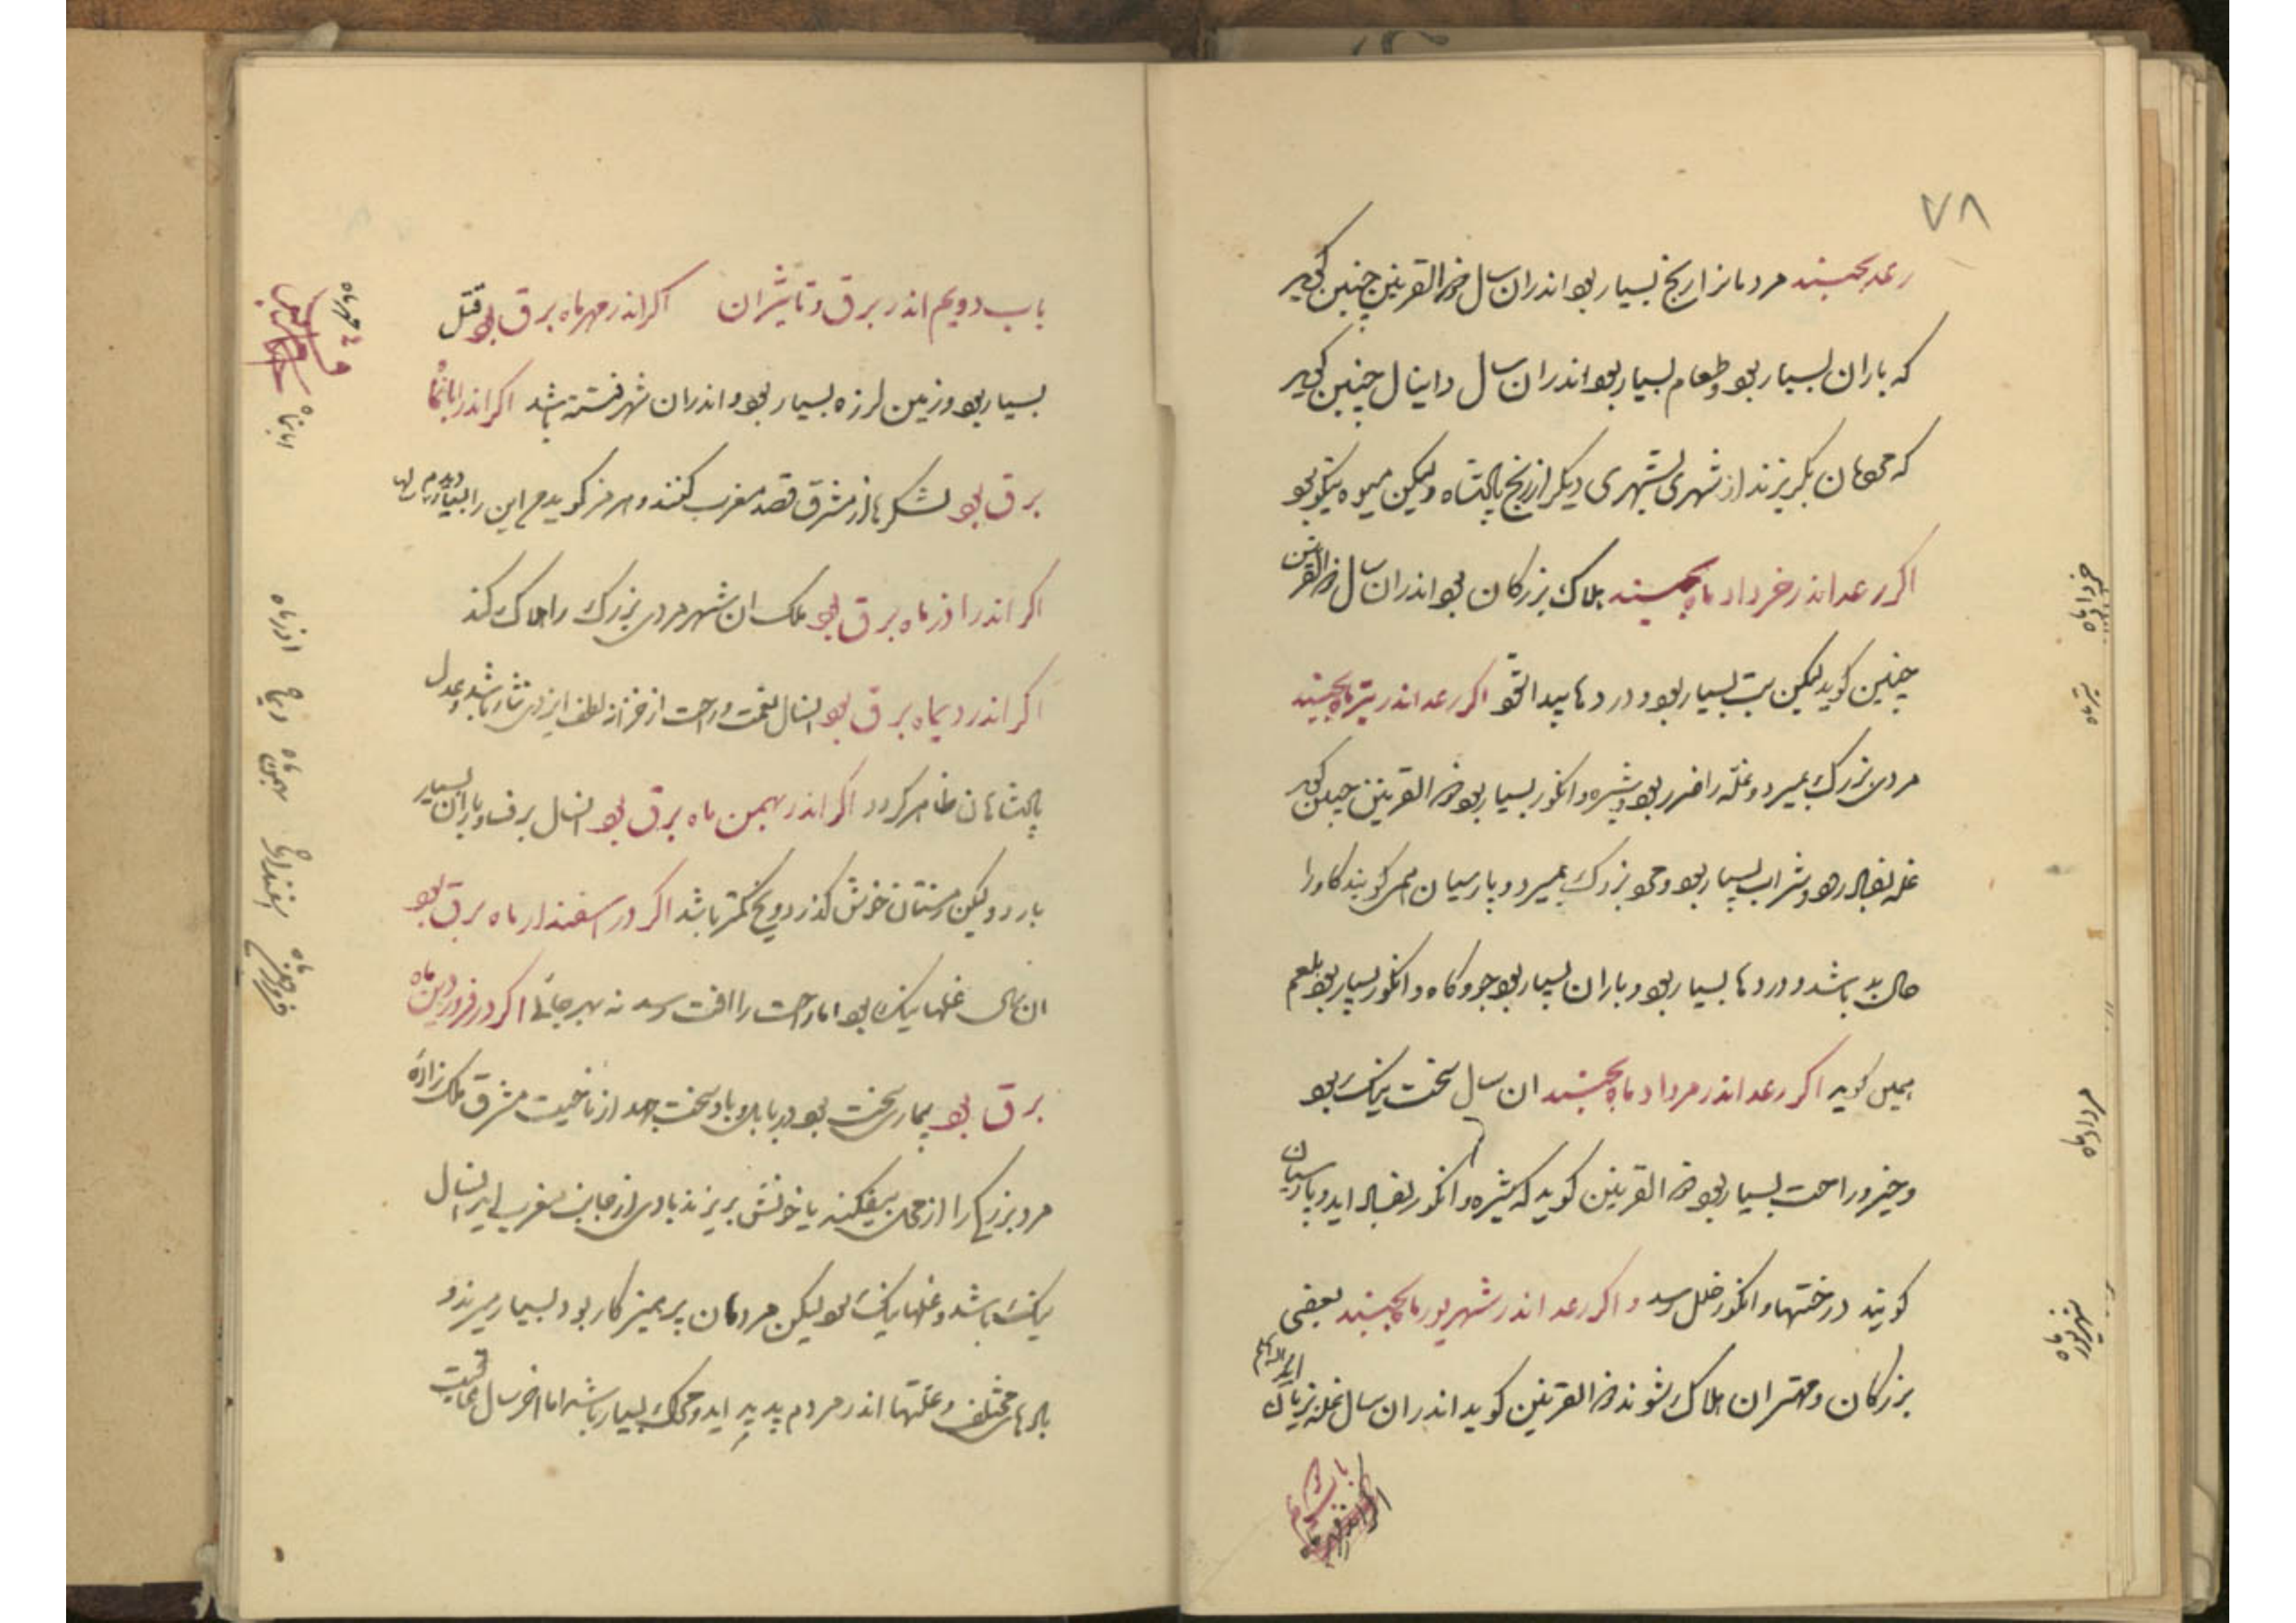 ۷۸
رعد بجنبد مردمانرا رنج بسیار بود اندران سال ذوالقرنین چنین گوید
که باران بسیار بود و طعام بسیار بود اندران سال دانیال چنین گوید
که بگریزند از شهری بشهری دیگر از رنج پادشاه ولیکن میوه نیکو بود
اگر رعد اندر خرداد ماه بجنبد هلاک بزرگان بود اندران سال ذوالقرنین
چنین گوید لیکن تب بسیار بود و دردها پیدا شود اگر رعد اندر تیر ماه بجنبد
مردی بزرگ بمیرد و غله را ضرر بود و شیره و انگور بسیار بود ذوالقرنین چنین گوید
غله و شراب بسیار بود و بزرگ بمیرد و پارسیان گویند گاو را
حال بد باشد و دردها بسیار بود و باران بسیار بود جو و کاه و انگور بسیار بود بلعم
همین گوید اگر رعد اندر مرداد ماه بجنبد ان سال سخت نیک بود
و خیر و راحت بسیار بود ذوالقرنین گوید که شیره و انگور اید و پارسیان
گویند درختها و انگور خلل رسد و اگر رعد اندر شهریور ماه بجنبد بعضی
بزرگان و مهتران هلاک شوند ذوالقرنین گوید اندران سال غله بزیان
خرداد ماه
تیر ماه
مرداد ماه
شهریور ماه
باب دویم اندر برق و تاثیران اگر اندر مهر ماه برق بود قتل
بسیار بود و زمین لرزه بسیار بود و اندران شهر فتنه باشد اگر اندر ابانماه
برق بود لشکرها از مشرق قصد مغرب کنند و هرمز گوید من این را بسیار دیدم
اگر اندر اذر ماه برق بود ملک ان شهر مردی بزرگ را هلاک کند
اگر اندر دیماه برق بود انسال نعمت و راحت از لطف ایزدی نثار باشد و عدل
پادشاهان ظاهر گردد اگر اندر بهمن ماه برق بود انسال برف و باران بسیار
بارد ولیکن زمستان خوش گذرد و یخ کمتر باشد اگر در اسفندار ماه برق بود
ان سال غلها نیک بود اما راحت را افت رسد نه بهر جائی اگر در فروردین ماه
برق بود بیماری سخت بود و باد سخت جهد از ناحیت مشرق ملک زاده
مرد بزرگی را از جای بیفکند یا خونش بریزند بادی از جانب مغرب اید انسال
نیک باشد و غلها نیک بود لیکن مردمان پرهیزکار بود بسیار میرند و
بادهای مختلف و علتها اندر مردم پدید اید و جنگ بسیار باشد اما اخر سال عاقبت
مهر ماه
ابانماه
اذر ماه
دیماه
بهمن ماه
فروردین ماه